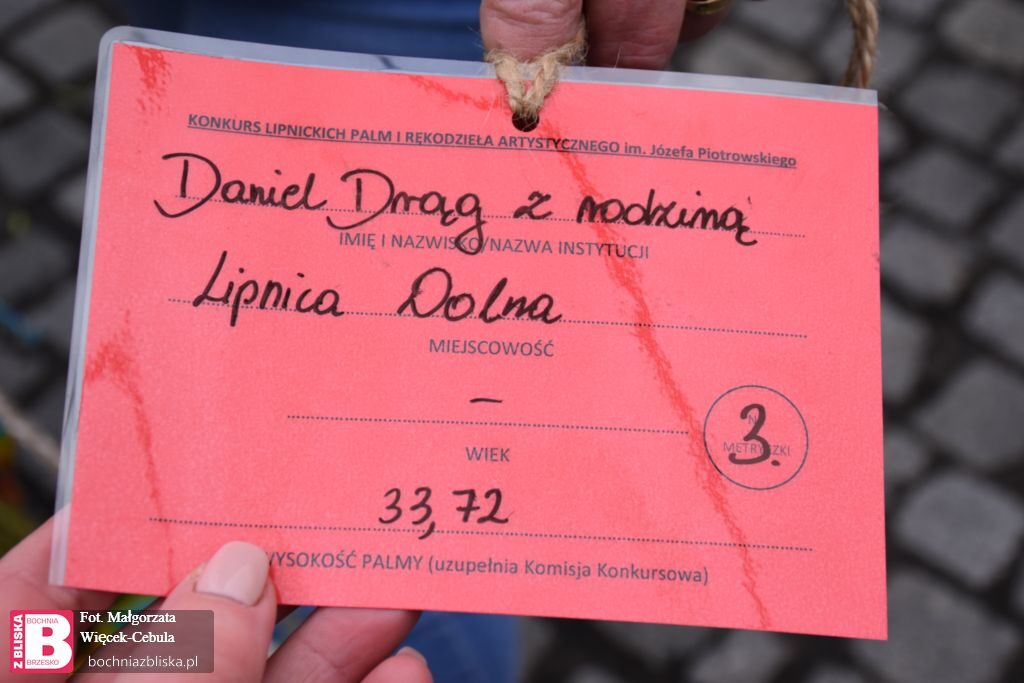 KONKURS LIPNICKICH PALM I RĘKODZIEŁA ARTYSTYCZNEGO im. Józefa Piotrowskiego
Daniel Drąg z rodziną
IMIĘ I NAZWISKO/NAZWA INSTYTUCJI
Lipnica Dolna
MIEJSCOWOŚĆ
–
WIEK
3.
METRYCZKI
33,72
WYSOKOŚĆ PALMY (uzupełnia Komisja Konkursowa)
Z BLISKA
BOCHNIA
B
BRZESKO
Fot. Małgorzata
Więcek-Cebula
bochniazbliska.pl